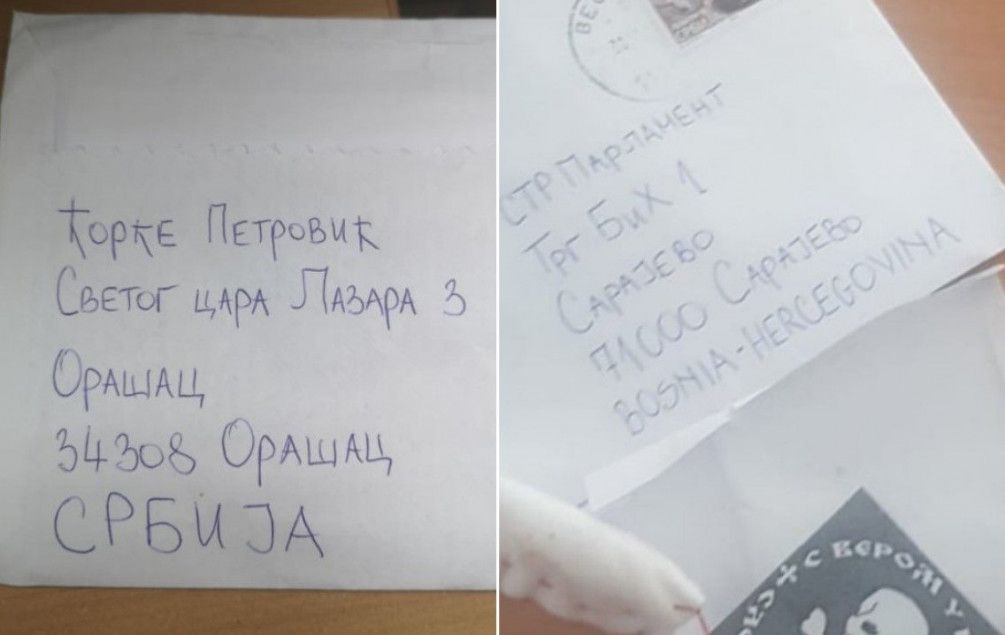 Ђорђе Петровић
Светог цара Лазара 3
Орашац
34308 Орашац
СРБИЈА
БЕО
СТР Парламент
Трг БиХ 1
Сарајево
71000 Сарајево
BOSNIA-HERCEGOVINA
С ВЕРОМ У